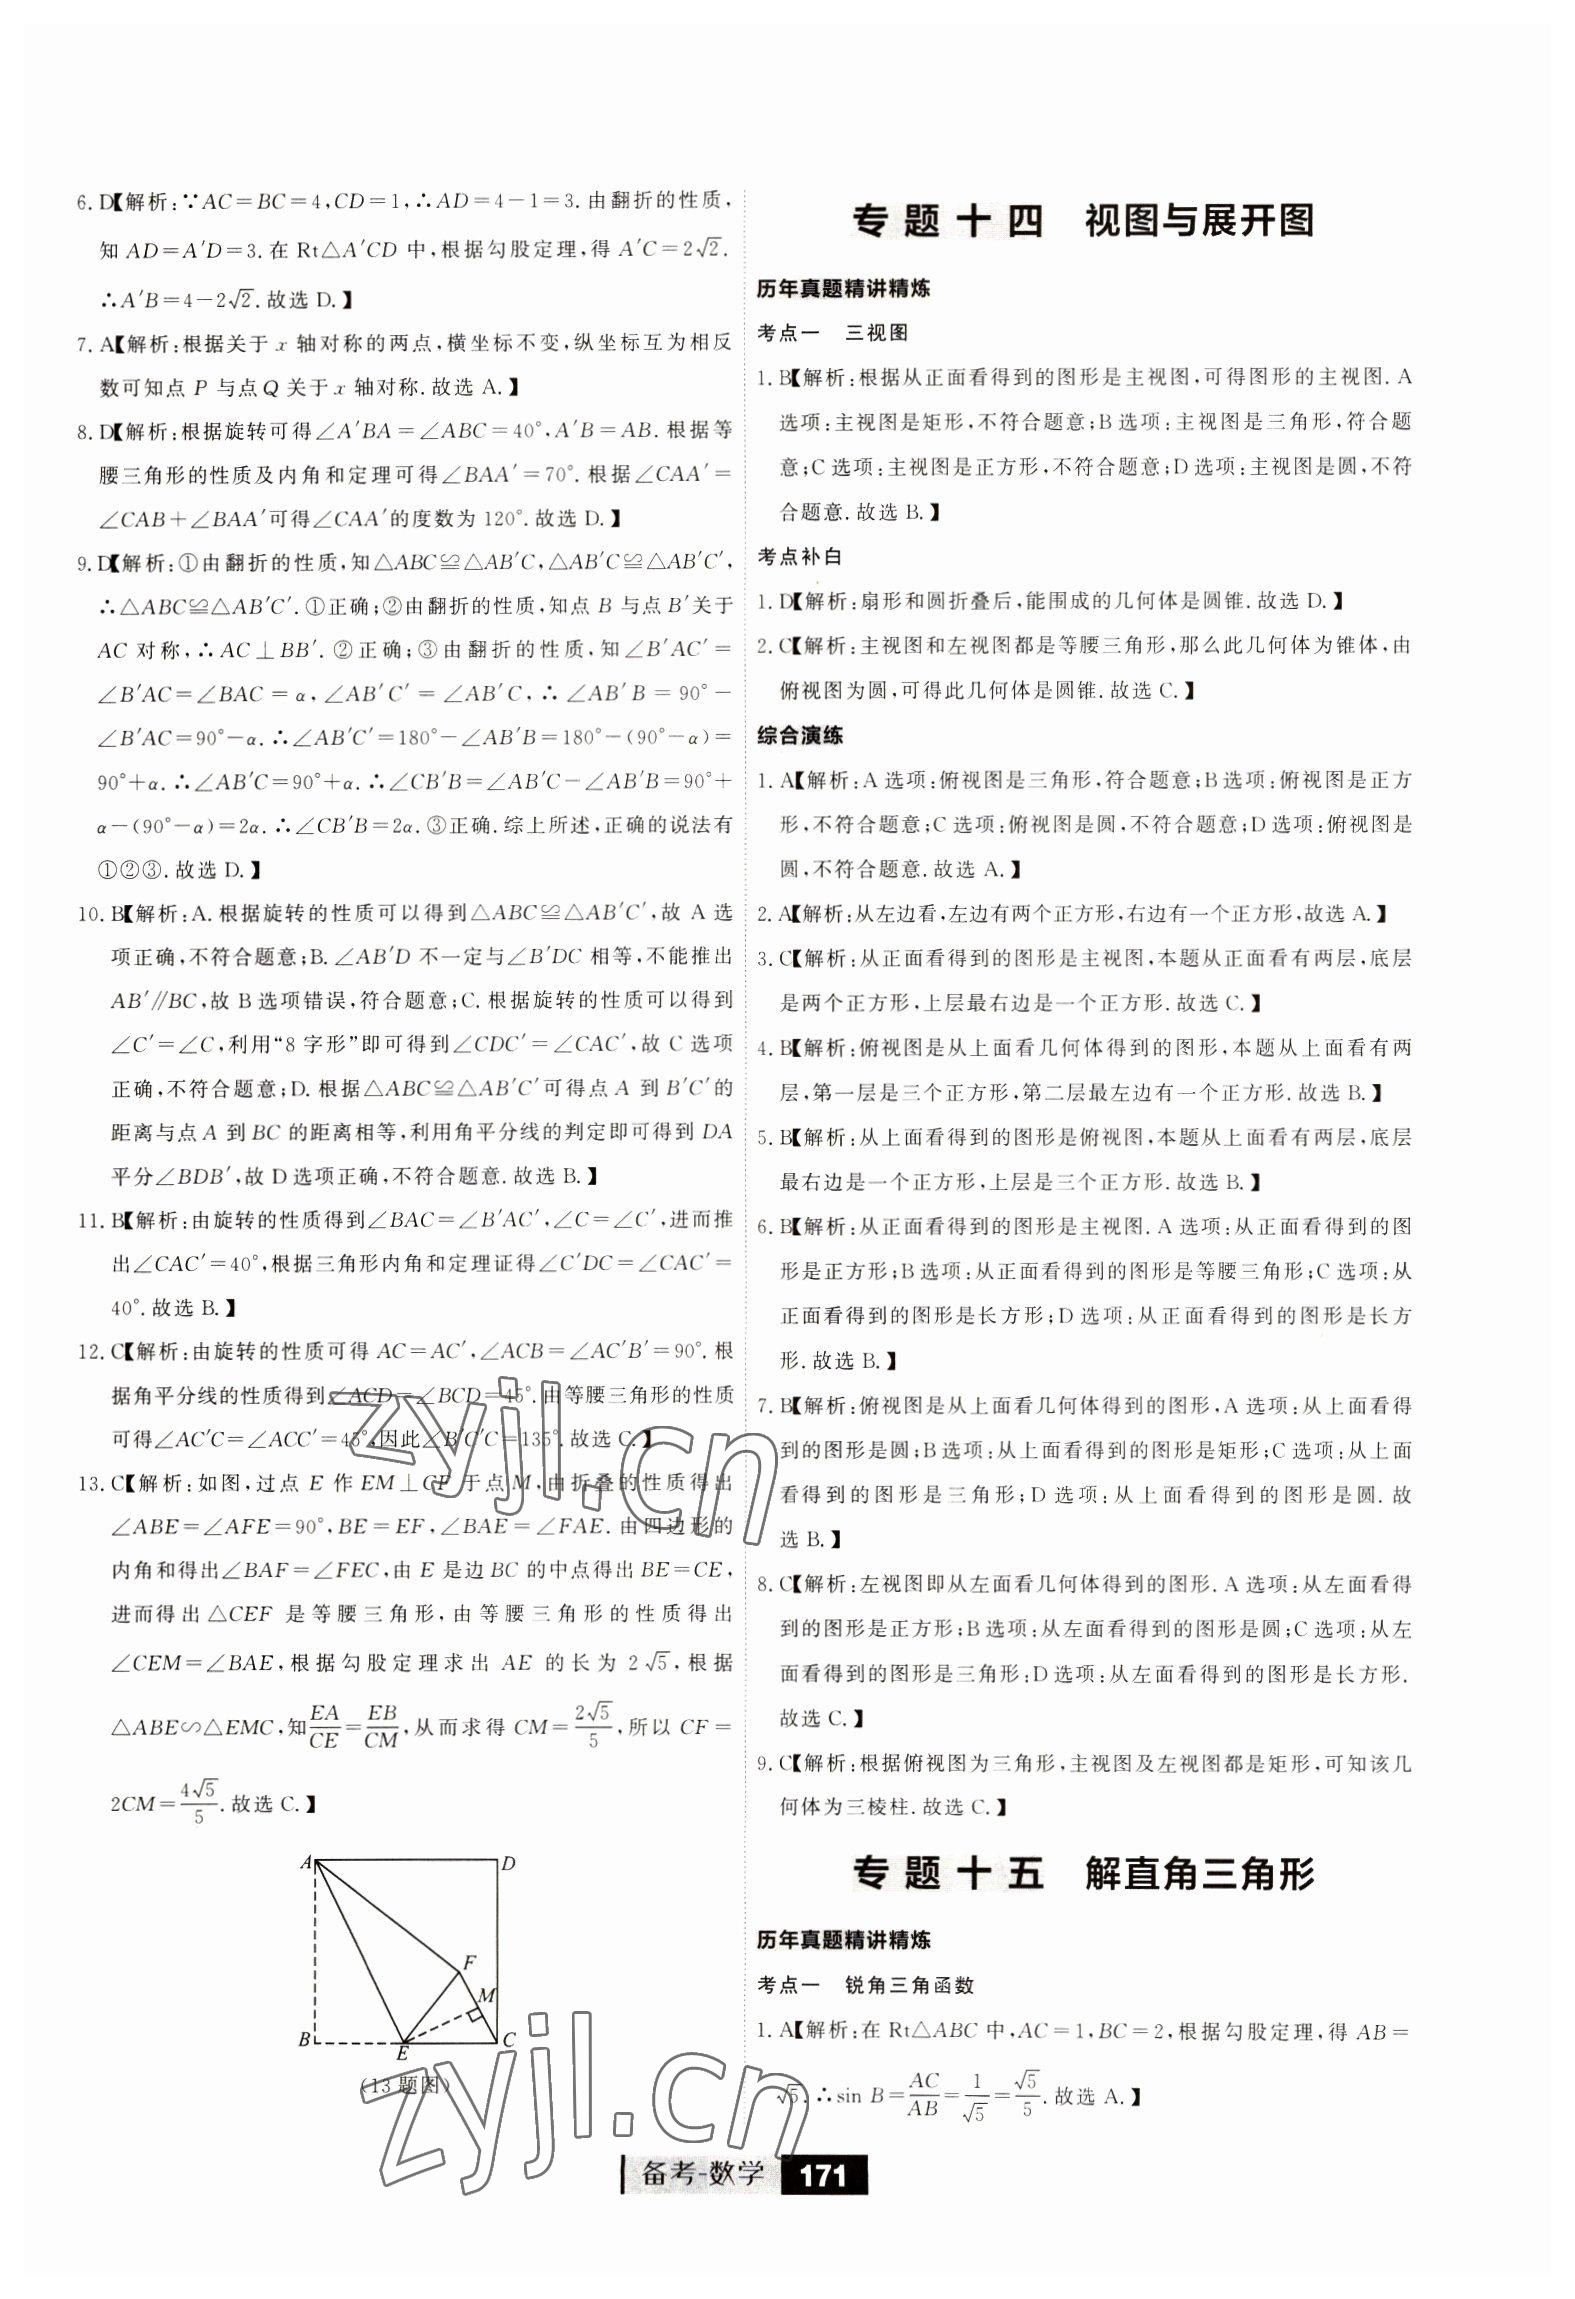 6. D【解析:∵AC=BC=4,CD=1,∴AD=4-1=3.由翻折的性质,
知 AD=A′D=3.在 Rt△A′CD 中,根据勾股定理,得 A′C=2√2.
∴A′B=4-2√2.故选 D.】
7. A【解析:根据关于 x 轴对称的两点,横坐标不变,纵坐标互为相反
数可知点 P 与点 Q 关于 x 轴对称.故选 A.】
8. D【解析:根据旋转可得∠A′BA=∠ABC=40°,A′B=AB.根据等
腰三角形的性质及内角和定理可得∠BAA′=70°.根据∠CAA′=
∠CAB+∠BAA′可得∠CAA′的度数为 120°.故选 D.】
9. D【解析:①由翻折的性质,知△ABC≌△AB′C,△AB′C≌△AB′C′,
∴△ABC≌△AB′C′.①正确;②由翻折的性质,知点 B 与点 B′关于
AC 对称,∴AC⊥BB′.②正确;③由翻折的性质,知∠B′AC′=
∠B′AC=∠BAC=α,∠AB′C′=∠AB′C,∴∠AB′B=90°-
∠B′AC=90°-α.∴∠AB′C′=180°-∠AB′B=180°-(90°-α)=
90°+α.∴∠AB′C=90°+α.∴∠CB′B=∠AB′C-∠AB′B=90°+
α-(90°-α)=2α.∴∠CB′B=2α.③正确.综上所述,正确的说法有
①②③.故选 D.】
10. B【解析:A.根据旋转的性质可以得到△ABC≌△AB′C′,故 A 选
项正确,不符合题意;B.∠AB′D 不一定与∠B′DC 相等,不能推出
AB′∥BC,故 B 选项错误,符合题意;C.根据旋转的性质可以得到
∠C′=∠C,利用“8 字形”即可得到∠CDC′=∠CAC′,故 C 选项
正确,不符合题意;D.根据△ABC≌△AB′C′可得点 A 到 B′C′的
距离与点 A 到 BC 的距离相等,利用角平分线的判定即可得到 DA
平分∠BDB′,故 D 选项正确,不符合题意.故选 B.】
11. B【解析:由旋转的性质得到∠BAC=∠B′AC′,∠C=∠C′,进而推
出∠CAC′=40°,根据三角形内角和定理证得∠C′DC=∠CAC′=
40°.故选 B.】
12. C【解析:由旋转的性质可得 AC=AC′,∠ACB=∠AC′B′=90°.根
据角平分线的性质得到∠ACD=∠BCD=45°.由等腰三角形的性质
可得∠AC′C=∠ACC′=45°,因此∠B′C′C=135°.故选 C.】
13. C【解析:如图,过点 E 作 EM⊥CF 于点 M,由折叠的性质得出
∠ABE=∠AFE=90°,BE=EF,∠BAE=∠FAE.由四边形的
内角和得出∠BAF=∠FEC,由 E 是边 BC 的中点得出 BE=CE,
进而得出△CEF 是等腰三角形,由等腰三角形的性质得出
∠CEM=∠BAE,根据勾股定理求出 AE 的长为 2√5,根据
△ABE∽△EMC,知EA/CE=EB/CM,从而求得 CM=2√5/5,所以 CF=
2CM=4√5/5.故选 C.】
A D
F
M
B E C
(13题图)
专题十四 视图与展开图
历年真题精讲精炼
考点一 三视图
1. B【解析:根据从正面看得到的图形是主视图,可得图形的主视图.A
选项:主视图是矩形,不符合题意;B 选项:主视图是三角形,符合题
意;C 选项:主视图是正方形,不符合题意;D 选项:主视图是圆,不符
合题意.故选 B.】
考点补白
1. D【解析:扇形和圆折叠后,能围成的几何体是圆锥.故选 D.】
2. C【解析:主视图和左视图都是等腰三角形,那么此几何体为锥体,由
俯视图为圆,可得此几何体是圆锥.故选 C.】
综合演练
1. A【解析:A 选项:俯视图是三角形,符合题意;B 选项:俯视图是正方
形,不符合题意;C 选项:俯视图是圆,不符合题意;D 选项:俯视图是
圆,不符合题意.故选 A.】
2. A【解析:从左边看,左边有两个正方形,右边有一个正方形,故选 A.】
3. C【解析:从正面看得到的图形是主视图,本题从正面看有两层,底层
是两个正方形,上层最右边是一个正方形.故选 C.】
4. B【解析:俯视图是从上面看几何体得到的图形,本题从上面看有两
层,第一层是三个正方形,第二层最左边有一个正方形.故选 B.】
5. B【解析:从上面看得到的图形是俯视图,本题从上面看有两层,底层
最右边是一个正方形,上层是三个正方形.故选 B.】
6. B【解析:从正面看得到的图形是主视图.A 选项:从正面看得到的图
形是正方形;B 选项:从正面看得到的图形是等腰三角形;C 选项:从
正面看得到的图形是长方形;D 选项:从正面看得到的图形是长方
形.故选 B.】
7. B【解析:俯视图是从上面看几何体得到的图形,A 选项:从上面看得
到的图形是圆;B 选项:从上面看得到的图形是矩形;C 选项:从上面
看得到的图形是三角形;D 选项:从上面看得到的图形是圆.故
选 B.】
8. C【解析:左视图即从左面看几何体得到的图形.A 选项:从左面看得
到的图形是正方形;B 选项:从左面看得到的图形是圆;C 选项:从左
面看得到的图形是三角形;D 选项:从左面看得到的图形是长方形.
故选 C.】
9. C【解析:根据俯视图为三角形,主视图及左视图都是矩形,可知该几
何体为三棱柱.故选 C.】
专题十五 解直角三角形
历年真题精讲精炼
考点一 锐角三角函数
1. A【解析:在 Rt△ABC 中,AC=1,BC=2,根据勾股定理,得 AB=
√5.∴sin B=AC/AB=1/√5=√5/5.故选 A.】
备考-数学 171
zyjl.cn
zyjl.cn